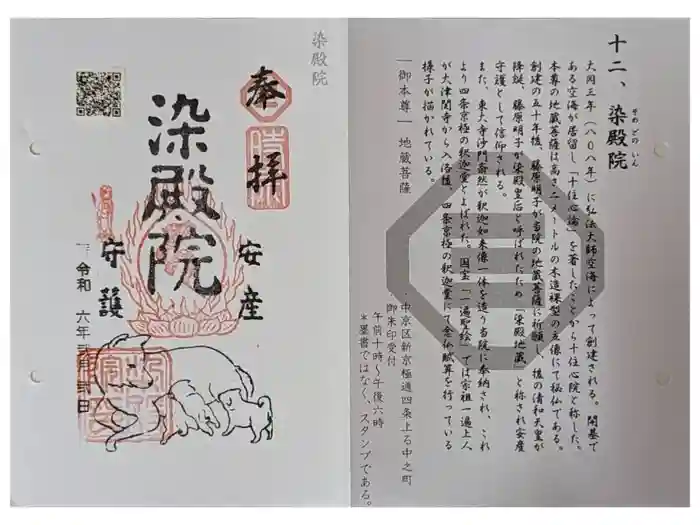 十二、染殿院
そめどのいん
大同三年(八〇八年)に弘法大師空海によって創建される。開基で
ある空海が居留し「十住心論」を著したことから十住心院と称した。
本尊の地蔵菩薩は高さ二メートルの木造裸型の立像にて秘仏である。
創建の五十年後、藤原明子が当院の地蔵菩薩に祈願し、後の清和天皇が
降誕、藤原明子が染殿皇后と呼ばれたため「染殿地蔵」と称され安産
守護として信仰される。
また、東大寺沙門奝然が釈迦如来像一体を造り当院に奉納され、これ
より四条京極の釈迦堂とよばれた。国宝「一遍聖絵」では宗祖一遍上人
が大津関寺から入洛後、四条京極の釈迦堂にて念仏賦算を行っている
様子が描かれている。
―御本尊― 地蔵菩薩
中京区新京極通四条上る中之町
御朱印受付
午前十時〜午後六時
*墨書ではなく、スタンプである。
染殿院
奉拝
染殿院
安産
守護
令和 六年 弐月 弐日